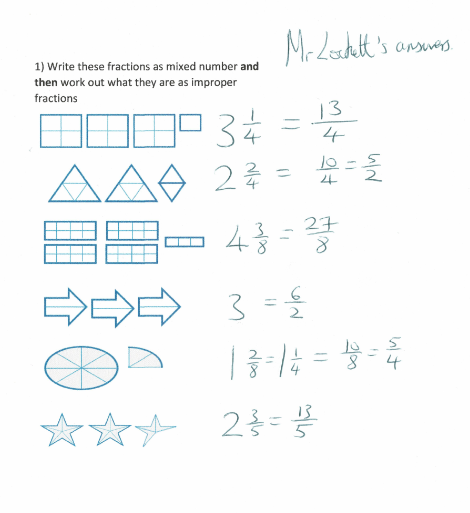 Mr Lockett's answers
1) Write these fractions as mixed number and
then work out what they are as improper
fractions
3 1/4 = 13/4
2 2/4 = 10/4 = 5/2
4 3/8 = 27/8
3 = 6/2
1 2/8 = 1 1/4 = 10/8 = 5/4
2 3/5 = 13/5